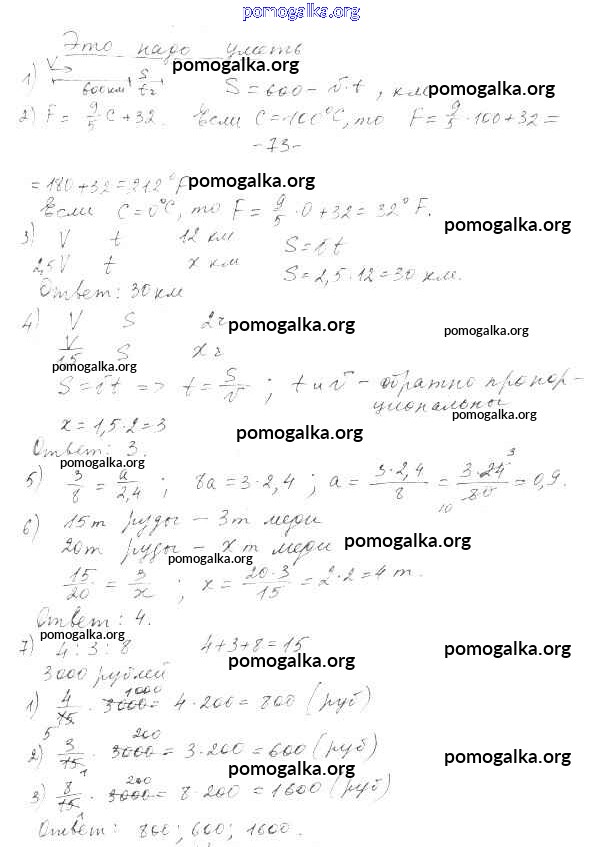 pomogalka.org
Это надо уметь
pomogalka.org
1) V
S
600 км
t г
S = 600 - v·t, км
pomogalka.org
2) F = 9/5 C + 32. Если C = 100°C, то F = 9/5 · 100 + 32 =
- 73 -
= 180 + 32 = 212°F
pomogalka.org
Если C = 0°C, то F = 9/5 · 0 + 32 = 32°F.
pomogalka.org
3) V t 12 км S = vt
2,5V t x км S = 2,5 · 12 = 30 км.
Ответ: 30 км
4) V S 2 г
pomogalka.org
pomogalka.org
V/1,5 S x г
pomogalka.org
S = vt => t = S/v ; t и v - обратно пропор-
циональны
pomogalka.org
x = 1,5 · 2 = 3
pomogalka.org
Ответ: 3.
pomogalka.org
5) 3/8 = a/2,4 ; 8a = 3 · 2,4 ; a = 3·2,4/8 = 3·24/80 = 0,9.
3
10
6) 15 т руды - 3 т меди
20 т руды - x т меди
pomogalka.org
pomogalka.org
15/20 = 3/x ; x = 20·3/15 = 2·2 = 4 т.
Ответ: 4.
pomogalka.org
7) 4 : 3 : 8 4 + 3 + 8 = 15
pomogalka.org
pomogalka.org
3000 рублей
1) 4/15 · 3000 = 4 · 200 = 800 (руб)
1000
5
2) 3/15 · 3000 = 3 · 200 = 600 (руб)
200
1
pomogalka.org
pomogalka.org
3) 8/15 · 3000 = 8 · 200 = 1600 (руб)
200
1
Ответ: 800; 600; 1600.